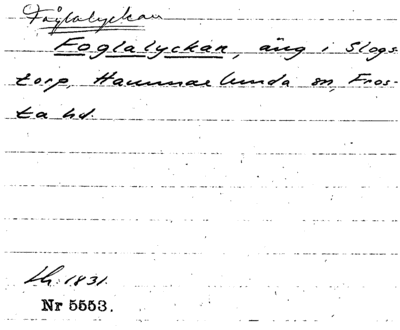 Fåglalyckan
Foglalyckan, äng i Slogs-
torp, Hammarlunda sn, Fros-
ta hd.
Lh. 1831.
Nr 5553.